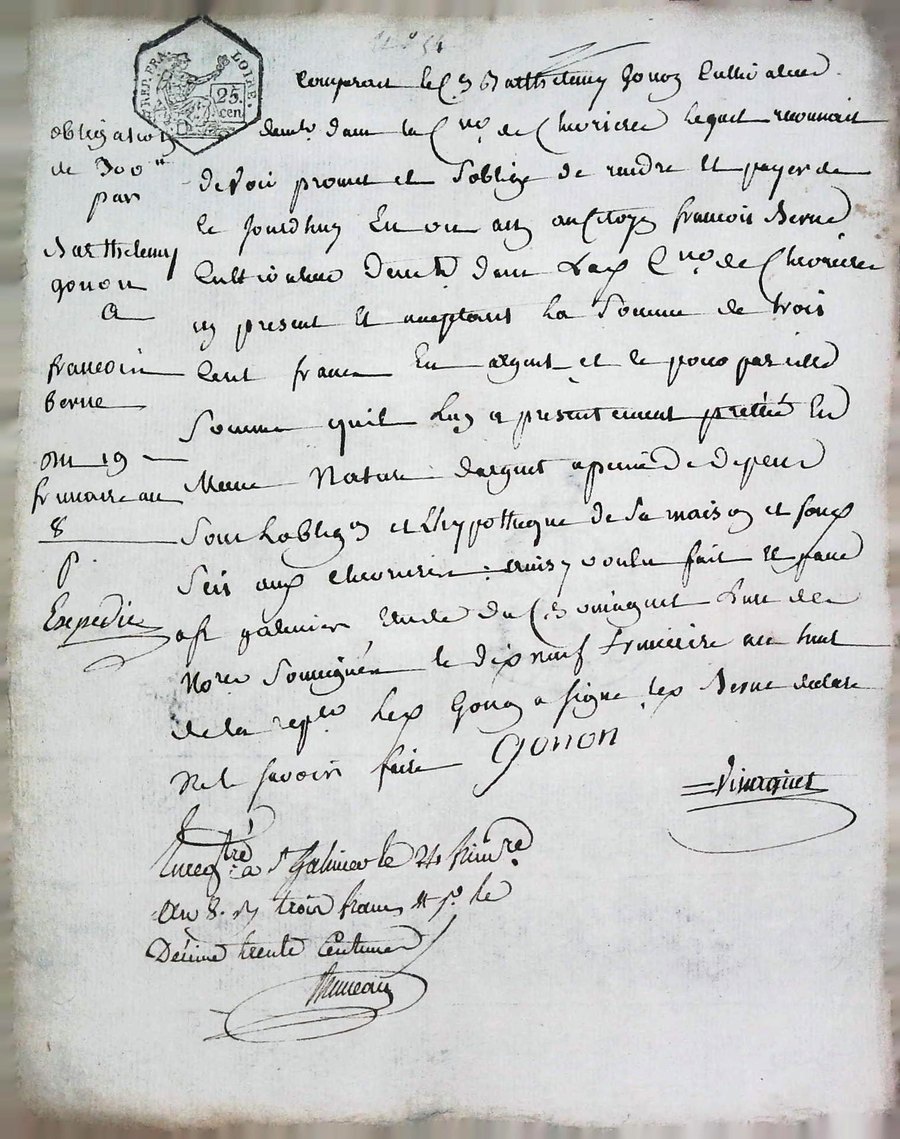 REP. FRA.
LOIRE.
25.
cen
comparait le C. Barthelemy Gonon Cultivateur
demt dans la Cne de Chevrieres lequel reconnait
devoir promet et Soblige de rendre et payer de
ce jourdhuy En un an au Citoyen francois Berne
Cultivateur demt dans La Cne de Chevrieres
present et acceptant La Somme de trois
Cent francs En argent et ce pour pareille
Somme quil Luy a presentement prettée En
Meme Nature dargent a peine de depens
Sous Lobligon et Lhypotheque de Sa maison et fonds
Scis aux Chevrieres ainsy voulu fait et passé
a St galmier Etude du C. vinaignet Lun des
Nores Soussignés le dix neuf frimaire an huit
de la repue Led Gonon a signé Led Berne declaré
Ne le savoir faire
Gonon
Vinaignet
obligation
de 300
par
Barthelemy
gonon
a
francois
berne
du 19
frimaire an
8
Expédié
Enregtré a St Galmier le 24 frimre
An 8. trois francs
Décime trente Centimes